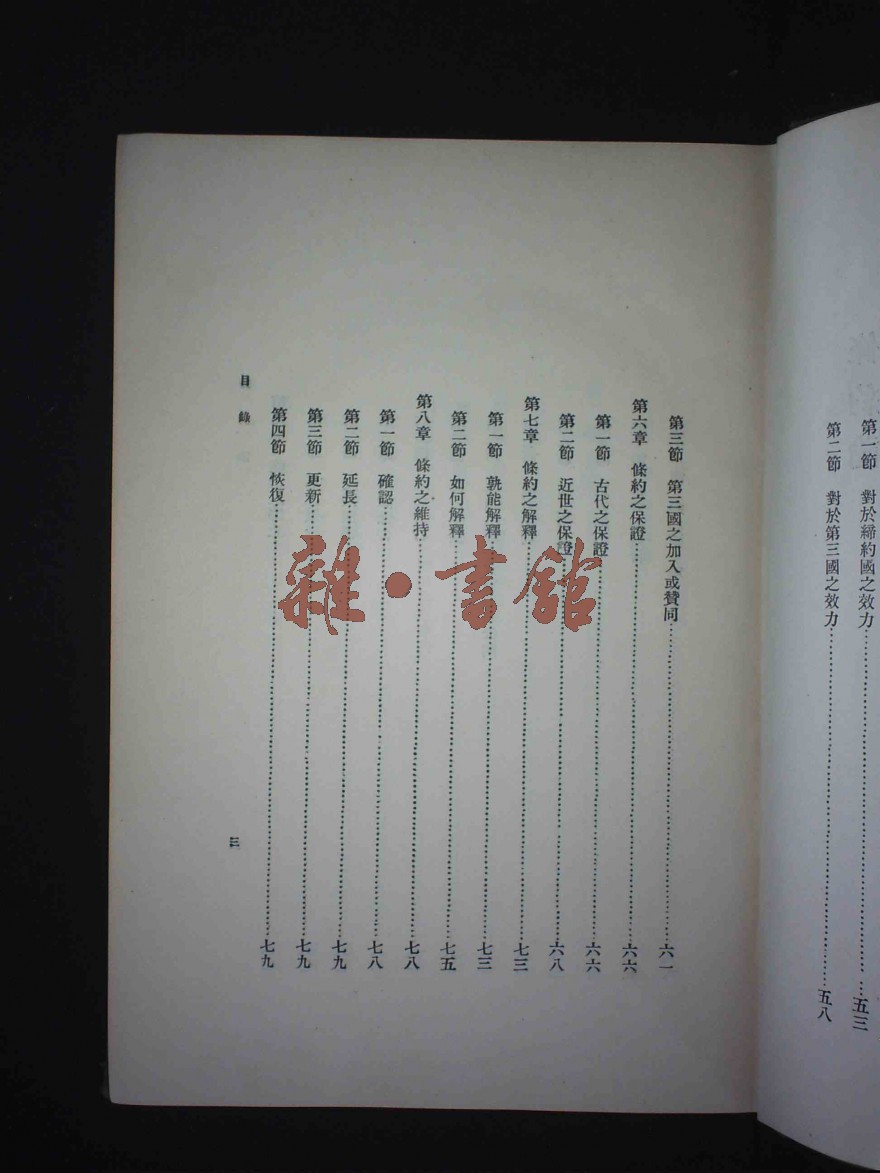 第一節　對於締約國之效力……五三
第二節　對於第三國之效力……五八
第三節　第三國之加入或贊同……六一
第六章　條約之保證……六六
第一節　古代之保證……六六
第二節　近世之保證……六八
第七章　條約之解釋……七三
第一節　孰能解釋……七三
第二節　如何解釋……七五
第八章　條約之維持……七八
第一節　確認……七八
第二節　延長……七九
第三節　更新……七九
第四節　恢復……七九
目錄
三
雜・書館